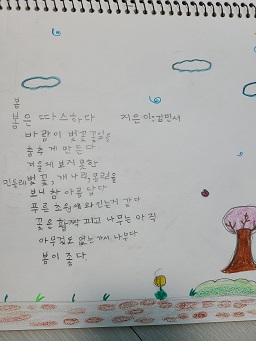 봄
봄은 따스하다 지은이:김민서
바람이 벚꽃잎을
춤추게 만든다
겨울에 보지 못한
민들레 벚꽃, 개나리, 목련을
보니 참 아름답다
푸른 초원에 와있는거 같다
꽃은 활짝 피고 나무는 아직
아무것도 없는
봄이 좋다